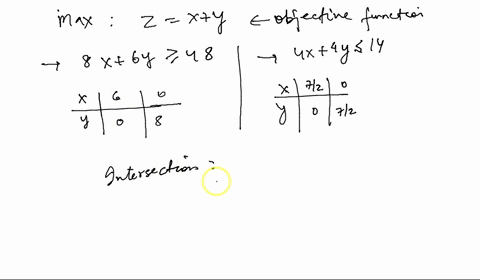 max : Z = x+y ← objective function
→ 8x+6y ≥ 48
x | 6 | 0
y | 0 | 8
→ 4x+4y ≤ 14
x | 7/2 | 0
y | 0 | 7/2
Intersection :